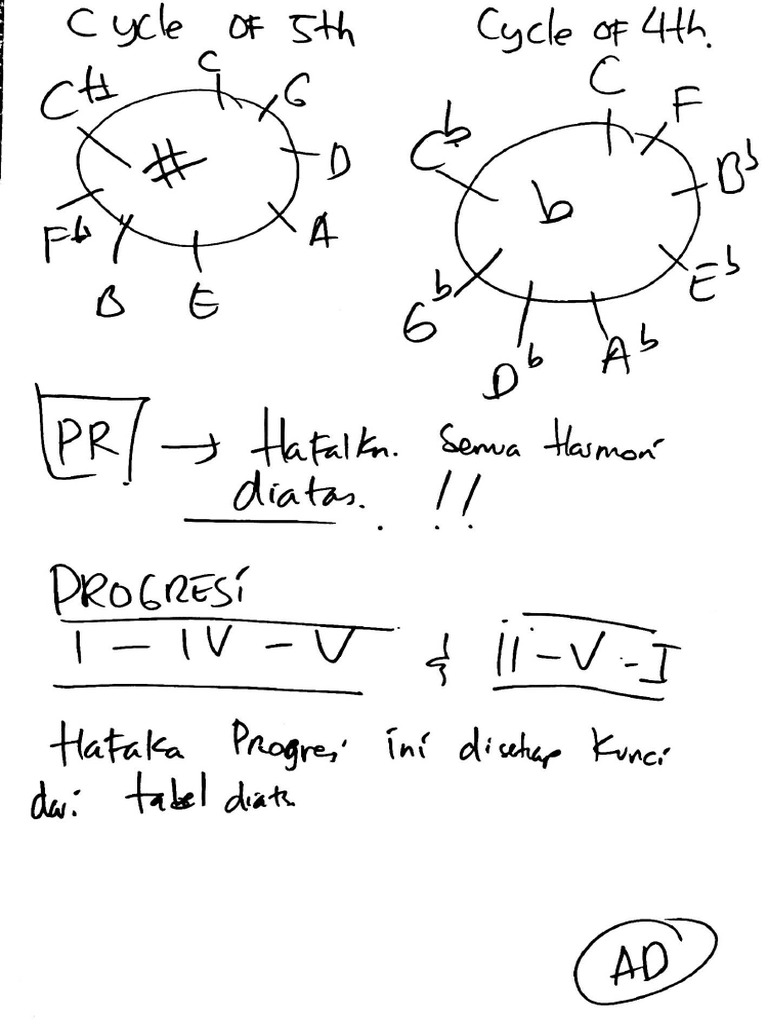 Cycle OF 5th
Cycle OF 4th.
C
G
D
A
E
B
F♭
C#
#
C
F
B♭
E♭
A♭
D♭
G♭
C♭
b
PR → Hafalkn. Semua Harmoni
diatas. !!
PROGRESi
I – IV – V & II – V – I
Hafalka Progresi ini disetiap Kunci
dari tabel diats.
AD